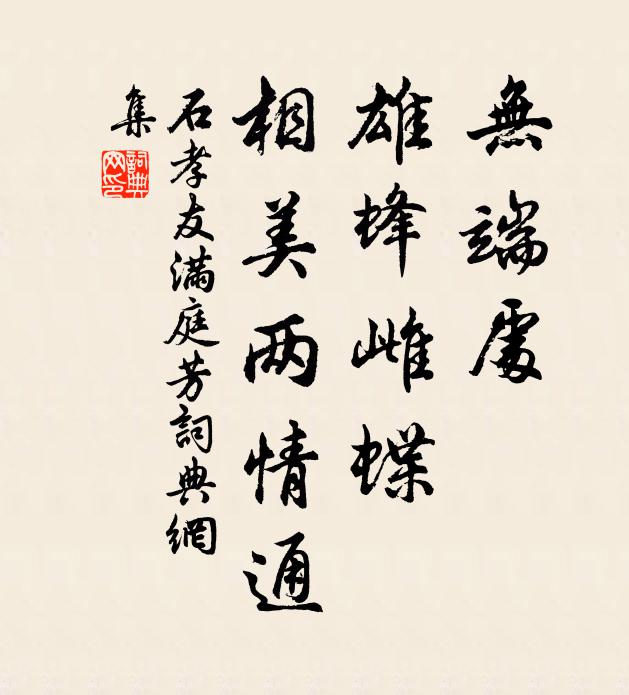 無端處
雄蜂雌蝶
相美两情通
石孝友满庭芳詞典網
集
詞典网印